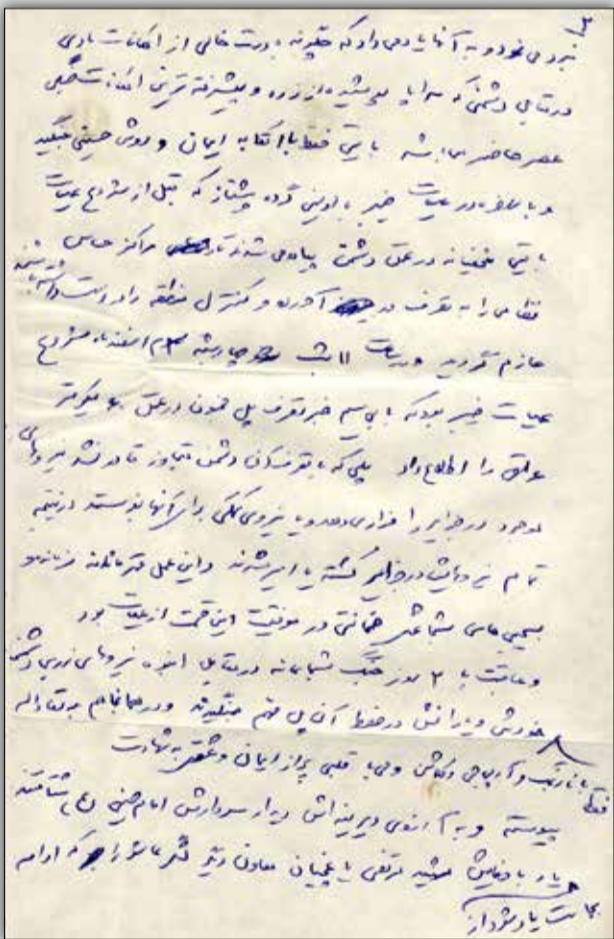 ۳
نبرد می نمود و به آنها یاد می داد که چگونه با دست خالی از امکانات مادی
در مقابل دشمنی که سراپا پوشیده از زره و پیشرفته ترین امکانات جنگی
عصر حاضر می باشد بایستی فقط با اتکا به ایمان و روش حسینی جنگید
و بالاخره در عملیات خیبر با اولین گروه پیشتاز که قبل از شروع عملیات
بایستی مخفیانه در عمق دشمن پیاده می شدند تا مراکز حساس
نظامی را به تصرف در آورده و کنترل منطقه را در دست داشته باشند
عازم گردید و در ساعت ۱۱ شب چهارشنبه ۳ اسفند ماه شروع
عملیات خیبر بود که با بی سیم خبر تصرف پل در عمق کیلومتر
عراق را اطلاع داد پلی که با تصرف آن دشمن متجاوز قادر نشد نیروهای
موجود در جزایر را فراری دهد و یا نیروی کمکی برای آنها بفرستد در نتیجه
تمام نیروهایش در جزایر کشته یا اسیر شدند و این عمل قهرمانانه فرمانده و
بسیجی های شجاعش ضمانتی در موفقیت این قسمت از عملیات بود
و عاقبت با ۲ روز جنگ شجاعانه در مقابل انبوه نیروهای زرهی دشمن
خودش و یارانش در حفظ آن پل مهم جنگیدند و در همانجا هم به لقاءالله
فقط با نارنجک و آرپی جی و کلاش ولی با قلبی پر از ایمان و عشق به شهادت
پیوسته و به آرزوی دیرینه اش دیدار سردارش امام حسین (ع) شتافتند
یار با وفایش شهید مرتضی یاغچیان معاون دیگر لشگر عاشورا که ادامه
یاد شود از